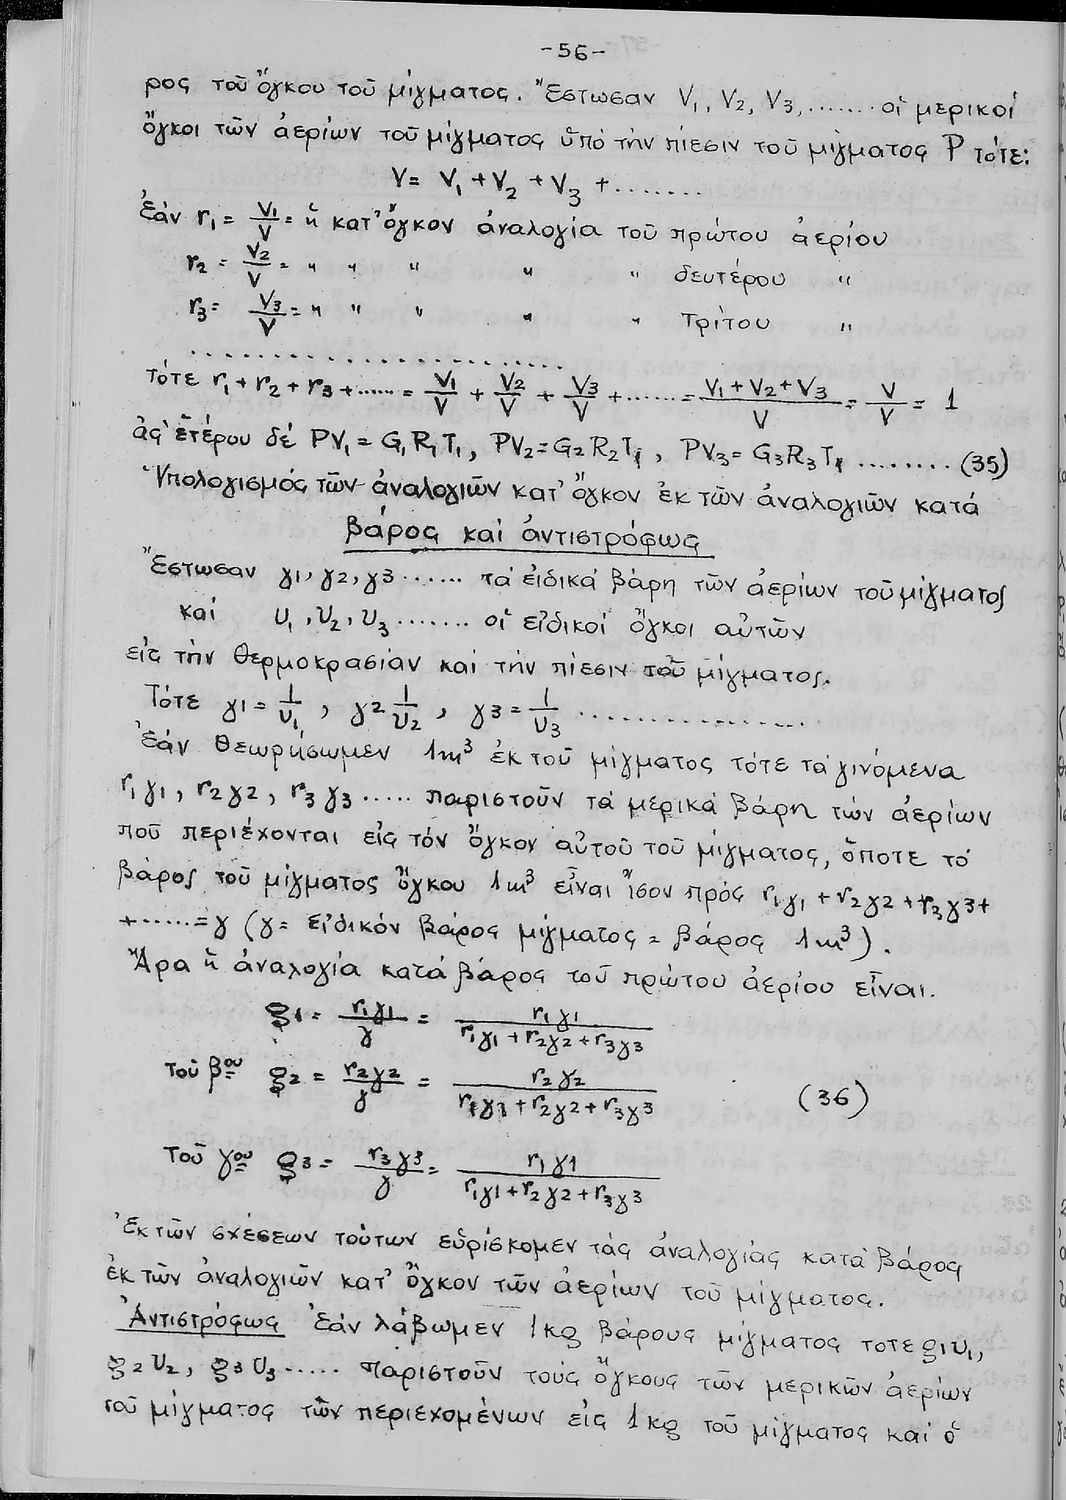 -56-
ρος τοῦ ὄγκου τοῦ μίγματος. Ἔστωσαν V₁, V₂, V₃, ....... οἱ μερικοί
ὄγκοι τῶν ἀερίων τοῦ μίγματος ὑπό τήν πίεσιν τοῦ μίγματος P τότε:
V= V₁ + V₂ + V₃ + .......
Ἐάν r₁ = V₁/V = ἡ κατ' ὄγκον ἀναλογία τοῦ πρώτου ἀερίου
r₂ = V₂/V = " " " " " δευτέρου "
r₃ = V₃/V = " " " " " Τρίτου "
.......................
Τότε r₁ + r₂ + r₃ + ...... = V₁/V + V₂/V + V₃/V + ...... = (V₁ + V₂ + V₃)/V = V/V = 1
ἀφ' ἑτέρου δέ PV₁ = G₁R₁T₁, PV₂ = G₂R₂T₁, PV₃ = G₃R₃T₁ ........ (35)
Ὑπολογισμός τῶν ἀναλογιῶν κατ' ὄγκον ἐκ τῶν ἀναλογιῶν κατά
βάρος καί ἀντιστρόφως
Ἔστωσαν γ₁, γ₂, γ₃ ...... τά εἰδικά βάρη τῶν ἀερίων τοῦ μίγματος
καί υ₁, υ₂, υ₃ ....... οἱ εἰδικοί ὄγκοι αὐτῶν
εἰς τήν θερμοκρασίαν καί τήν πίεσιν τοῦ μίγματος.
Τότε γ₁ = 1/υ₁, γ₂ 1/υ₂, γ₃ = 1/υ₃ .................
Ἐάν θεωρήσωμεν 1m³ ἐκ τοῦ μίγματος τότε τά γινόμενα
r₁γ₁, r₂γ₂, r₃γ₃ ..... παριστοῦν τά μερικά βάρη τῶν ἀερίων
πού περιέχονται εἰς τόν ὄγκον αὐτοῦ τοῦ μίγματος, ὅποτε τό
βάρος τοῦ μίγματος ὄγκου 1m³ εἶναι ἴσον πρός r₁γ₁ + r₂γ₂ + r₃γ₃ +
+ ...... = γ (γ = εἰδικόν βάρος μίγματος = βάρος 1m³).
Ἄρα ἡ ἀναλογία κατά βάρος τοῦ πρώτου ἀερίου εἶναι.
g₁ = r₁γ₁/γ = r₁γ₁/(r₁γ₁ + r₂γ₂ + r₃γ₃)
τοῦ βου g₂ = r₂γ₂/γ = r₂γ₂/(r₁γ₁ + r₂γ₂ + r₃γ₃) (36)
τοῦ γου g₃ = r₃γ₃/γ = r₁γ₁/(r₁γ₁ + r₂γ₂ + r₃γ₃)
Ἐκ τῶν σχέσεων τούτων εὑρίσκομεν τάς ἀναλογίας κατά βάρος
ἐκ τῶν ἀναλογιῶν κατ' ὄγκον τῶν ἀερίων τοῦ μίγματος.
Ἀντιστρόφως Ἐάν λάβωμεν 1kg βάρους μίγματος τοτε g₁υ₁,
g₂υ₂, g₃υ₃ ..... παριστοῦν τούς ὄγκους τῶν μερικῶν ἀερίων
τοῦ μίγματος τῶν περιεχομένων εἰς 1kg τοῦ μίγματος καί ὁ